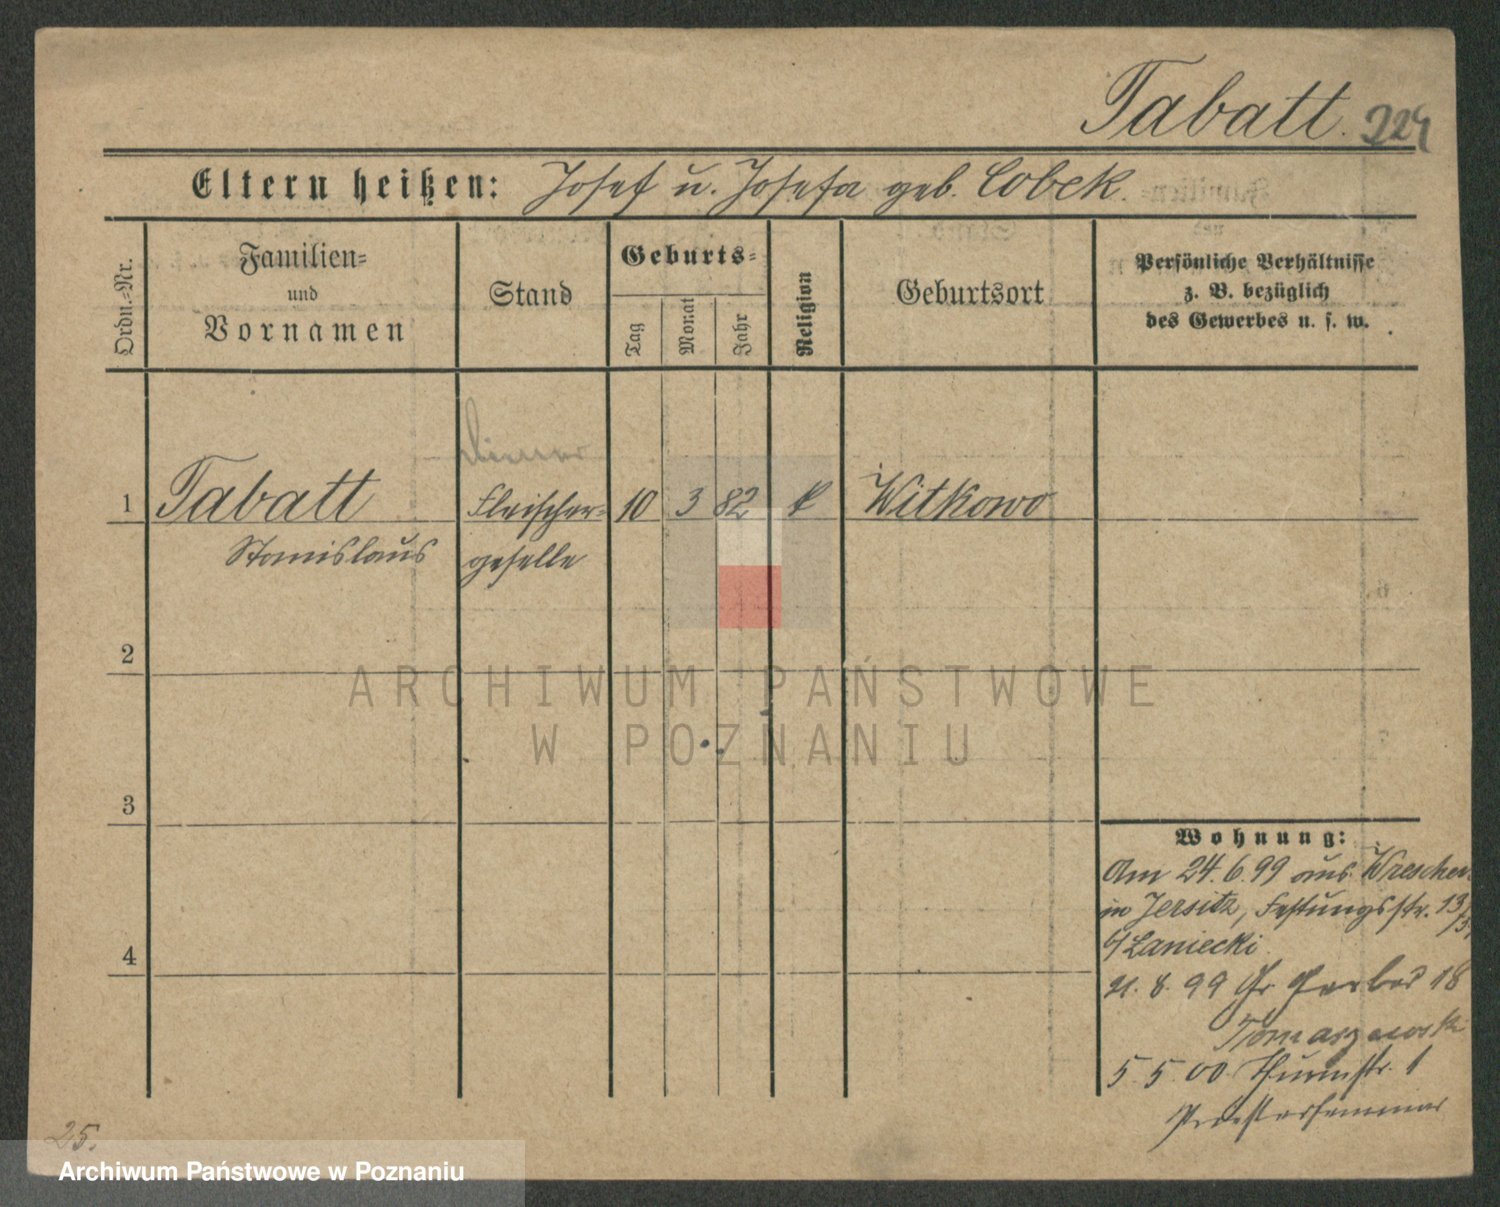 Tabatt. 224
Eltern heißen: Josef u. Josefa geb. Cobek.
Ordn.-Nr.
Familien-
und
Vornamen
Stand
Geburts-
Tag
Monat
Jahr
Religion
Geburtsort
Persönliche Verhältnisse
z. B. bezüglich
des Gewerbes u. s. w.
Diener
1 Tabatt Fleischer- 10 3 82 k Witkowo
Stanislaus geselle
2
ARCHIWUM PAŃSTWOWE
W POZNANIU
3
Wohnung:
Am 24.6.99 aus Wreschen
in Jersitz, Festungsstr. 13
b/ Laniecki
21.8.99 Gr. Gerber 18
4
Tomaszewski
5.5.00 Thurmstr. 1
Priesterseminar
25.
Archiwum Państwowe w Poznaniu